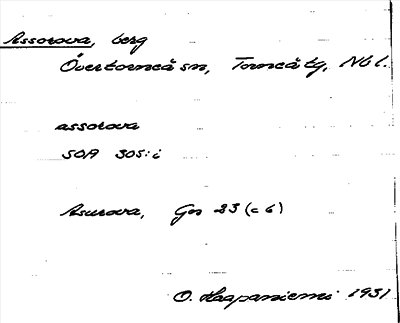 Assorova, berg
Övertorneå sn, Torneå tg, Nbl.
assorova
SOA 305:i
Asurova, Gos 23 (c 6)
O. Haapaniemi 1931